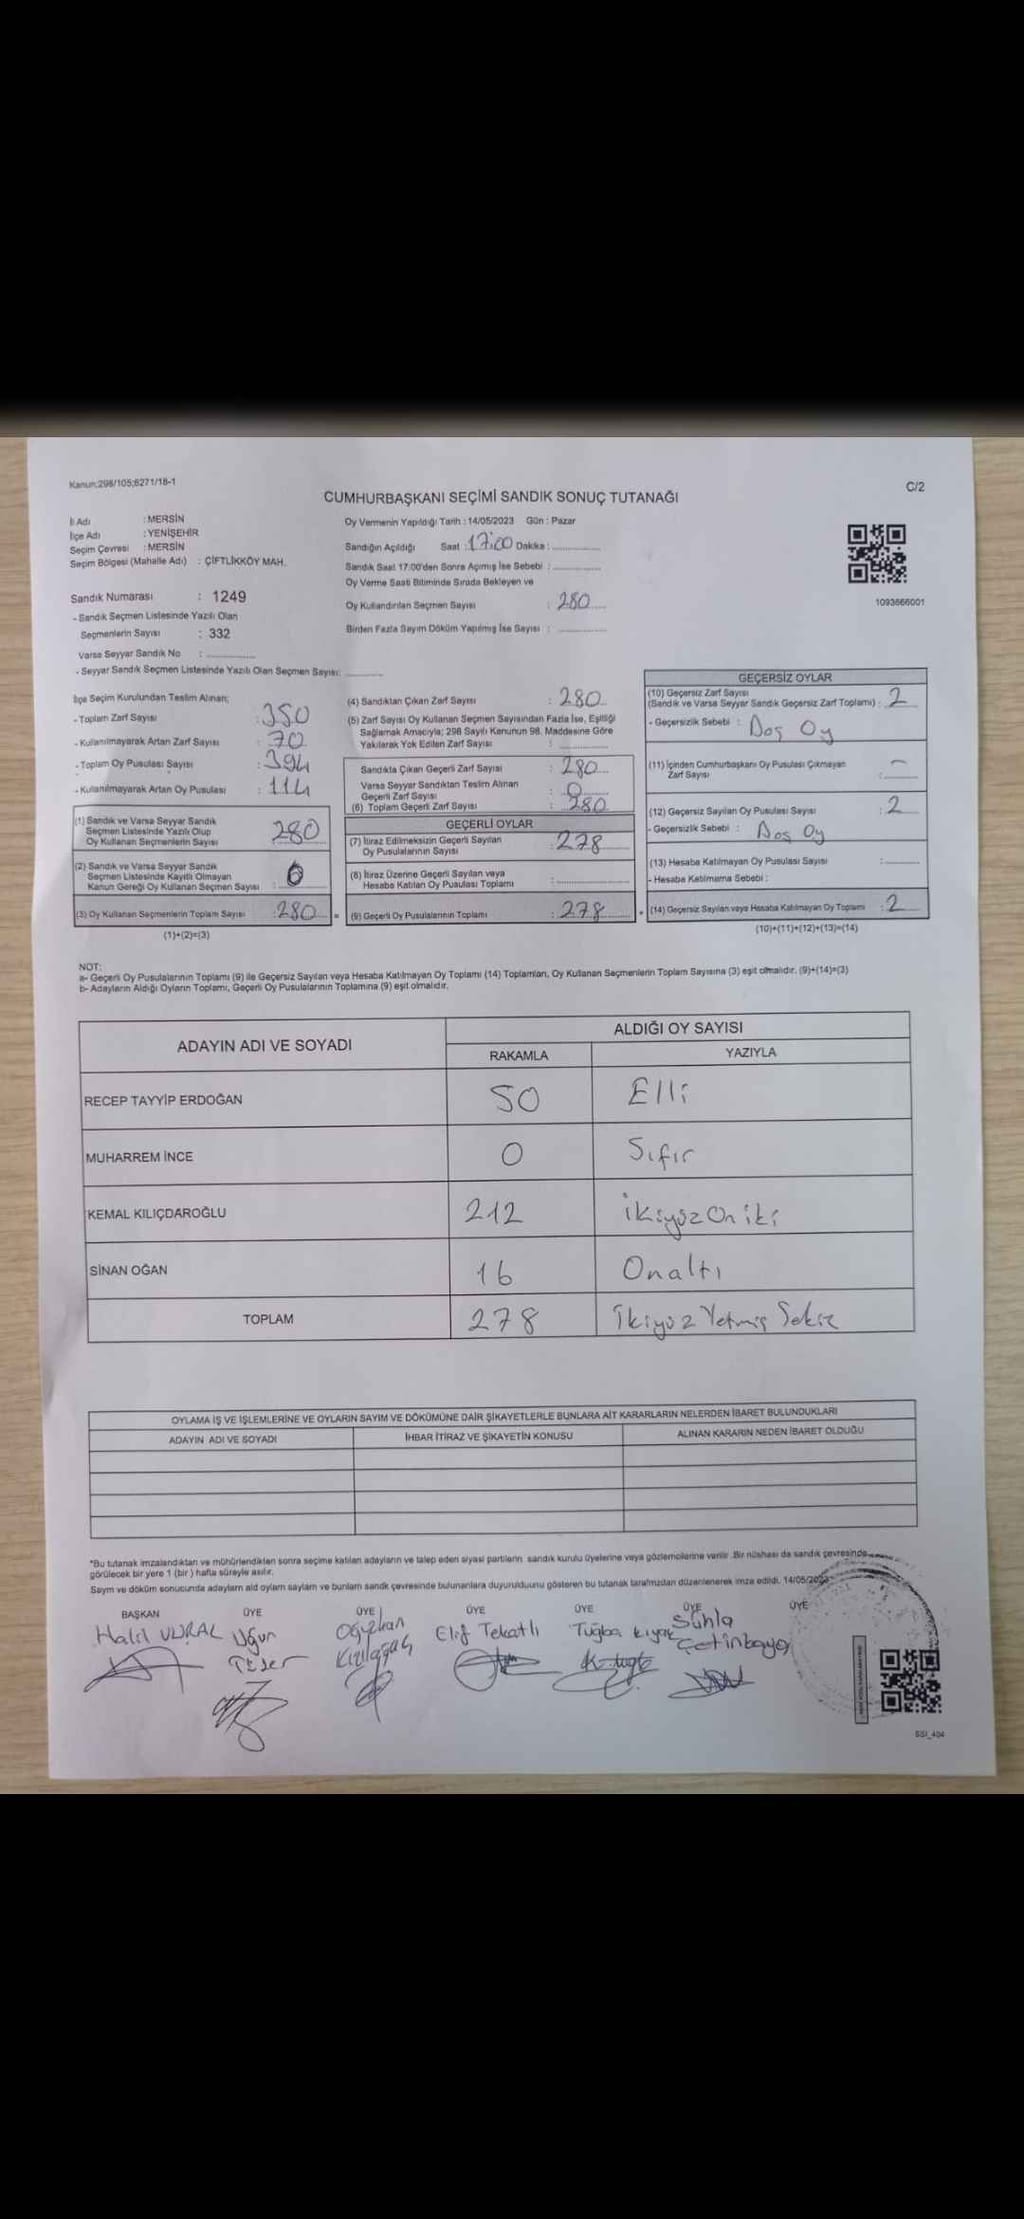 Kanun:298/105;6271/18-1
C/2
CUMHURBAŞKANI SEÇİMİ SANDIK SONUÇ TUTANAĞI
İl Adı : MERSİN
İlçe Adı : YENİŞEHİR
Seçim Çevresi : MERSİN
Seçim Bölgesi (Mahalle Adı) : ÇİFTLİKKÖY MAH.
Sandık Numarası : 1249
- Sandık Seçmen Listesinde Yazılı Olan
Seçmenlerin Sayısı : 332
Varsa Seyyar Sandık No :
- Seyyar Sandık Seçmen Listesinde Yazılı Olan Seçmen Sayısı:
Oy Vermenin Yapıldığı Tarih : 14/05/2023 Gün : Pazar
Sandığın Açıldığı Saat : 17:00 Dakika :
Sandık Saat 17:00'den Sonra Açımış İse Sebebi :
Oy Verme Saati Bitiminde Sırada Bekleyen ve
Oy Kullandırılan Seçmen Sayısı : 280
Birden Fazla Sayım Döküm Yapılmış İse Sayısı :
1093666001
İlçe Seçim Kurulundan Teslim Alınan;
- Toplam Zarf Sayısı : 350
- Kullanılmayarak Artan Zarf Sayısı : 70
- Toplam Oy Pusulası Sayısı : 394
- Kullanılmayarak Artan Oy Pusulası : 114
(1) Sandık ve Varsa Seyyar Sandık
Seçmen Listesinde Yazılı Olup
Oy Kullanan Seçmenlerin Sayısı 280
(2) Sandık ve Varsa Seyyar Sandık
Seçmen Listesinde Kayıtlı Olmayan
Kanun Gereği Oy Kullanan Seçmen Sayısı : 0
(3) Oy Kullanan Seçmenlerin Toplam Sayısı : 280
(1)+(2)=(3)
(4) Sandıktan Çıkan Zarf Sayısı : 280
(5) Zarf Sayısı Oy Kullanan Seçmen Sayısından Fazla İse, Eşitliği
Sağlamak Amacıyla; 298 Sayılı Kanunun 98. Maddesine Göre
Yakılarak Yok Edilen Zarf Sayısı :
Sandıkta Çıkan Geçerli Zarf Sayısı : 280
Varsa Seyyar Sandıktan Teslim Alınan
Geçerli Zarf Sayısı : 0
(6) Toplam Geçerli Zarf Sayısı : 280
GEÇERLİ OYLAR
(7) İtiraz Edilmeksizin Geçerli Sayılan
Oy Pusulalarının Sayısı : 278
(8) İtiraz Üzerine Geçerli Sayılan veya
Hesaba Katılan Oy Pusulası Toplamı :
(9) Geçerli Oy Pusulalarının Toplamı : 278
GEÇERSİZ OYLAR
(10) Geçersiz Zarf Sayısı
(Sandık ve Varsa Seyyar Sandık Geçersiz Zarf Toplamı) : 2
- Geçersizlik Sebebi : Boş Oy
(11) İçinden Cumhurbaşkanı Oy Pusulası Çıkmayan
Zarf Sayısı : -
(12) Geçersiz Sayılan Oy Pusulası Sayısı : 2
- Geçersizlik Sebebi : Boş Oy
(13) Hesaba Katılmayan Oy Pusulası Sayısı :
- Hesaba Katılmama Sebebi :
(14) Geçersiz Sayılan veya Hesaba Katılmayan Oy Toplamı : 2
(10)+(11)+(12)+(13)=(14)
NOT:
a- Geçerli Oy Pusulalarının Toplamı (9) ile Geçersiz Sayılan veya Hesaba Katılmayan Oy Toplamı (14) Toplamları, Oy Kullanan Seçmenlerin Toplam Sayısına (3) eşit olmalıdır. (9)+(14)=(3)
b- Adayların Aldığı Oyların Toplamı, Geçerli Oy Pusulalarının Toplamına (9) eşit olmalıdır.
ADAYIN ADI VE SOYADI
ALDIĞI OY SAYISI
RAKAMLA YAZIYLA
RECEP TAYYİP ERDOĞAN 50 Elli
MUHARREM İNCE 0 Sıfır
KEMAL KILIÇDAROĞLU 212 İkiyüz On iki
SİNAN OĞAN 16 Onaltı
TOPLAM 278 İkiyüz Yetmiş Sekiz
OYLAMA İŞ VE İŞLEMLERİNE VE OYLARIN SAYIM VE DÖKÜMÜNE DAİR ŞİKAYETLERLE BUNLARA AİT KARARLARIN NELERDEN İBARET BULUNDUKLARI
ADAYIN ADI VE SOYADI İHBAR İTİRAZ VE ŞİKAYETİN KONUSU ALINAN KARARIN NEDEN İBARET OLDUĞU
*Bu tutanak imzalandıktan ve mühürlendikten sonra seçime katılan adayların ve talep eden siyasi partilerin sandık kurulu üyelerine veya gözlemcilerine verilir. Bir nüshası da sandık çevresinde
görülecek bir yere 1 (bir) hafta süreyle asılır.
Sayım ve döküm sonucunda adayların ald oyların sayıları ve bunların sandık çevresinde bulunanlara duyurulduunu gösteren bu tutanak tarafımızdan düzenlenerek imza edildi. 14/05/2023
BAŞKAN ÜYE ÜYE ÜYE ÜYE ÜYE ÜYE
Halil VURAL
Uğur
Tezer
Oğuzhan
Kızılağaç
Elif Tekatlı
Tuğba Kıyak
Sühla
Çetinbayır
SSI_404